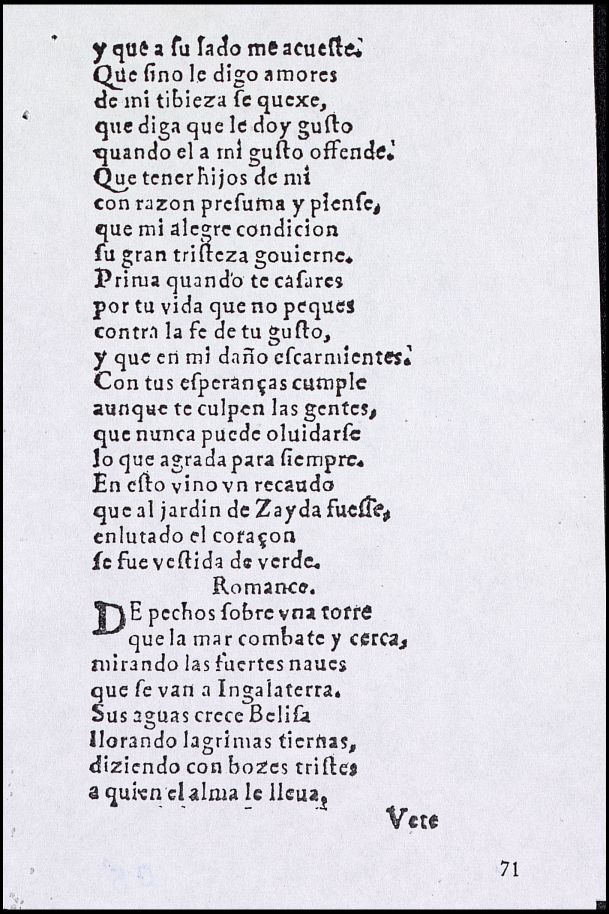 y que a ſu lado me acueſte?
Que ſino le digo amores
de mi tibieza ſe quexe,
que diga que le doy guſto
quando el a mi guſto offende?
Que tener hijos de mi
con razon preſuma y pienſe,
que mi alegre condicion
ſu gran triſteza gouierne.
Prima quando te caſares
por tu vida que no peques
contra la fe de tu guſto,
y que en mi daño eſcarmientes?
Con tus eſperanças cumple
aunque te culpen las gentes,
que nunca puede oluidarſe
lo que agrada para ſiempre.
En eſto vino vn recaudo
que al jardin de Zayda fueſſe,
enlutado el coraçon
ſe fue veſtida de verde.
Romance.
DE pechos ſobre vna torre
que la mar combate y cerca,
mirando las fuertes naues
que ſe van a Ingalaterra.
Sus aguas crece Beliſa
llorando lagrimas tiernas,
diziendo con bozes triſtes
a quien el alma le lleua,
Vete
71